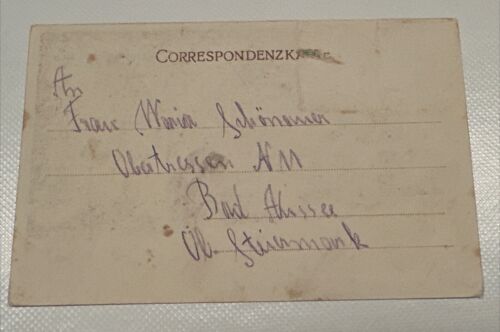 CORRESPONDENZKARTE
An
Frau Maria Schönauer
Obertressen N 11
Bad Aussee
Ob. Steiermark